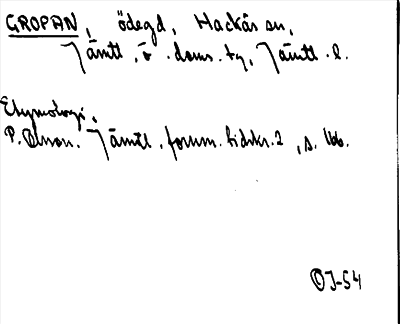 GROPAN, ödegd, Hackås sn,
Jämtl, ö. doms. tg, Jämtl. l.
Etymologi,
P. Olsson. Jämtl. fornm. tidskr. 2, s. 166.
OJ-54